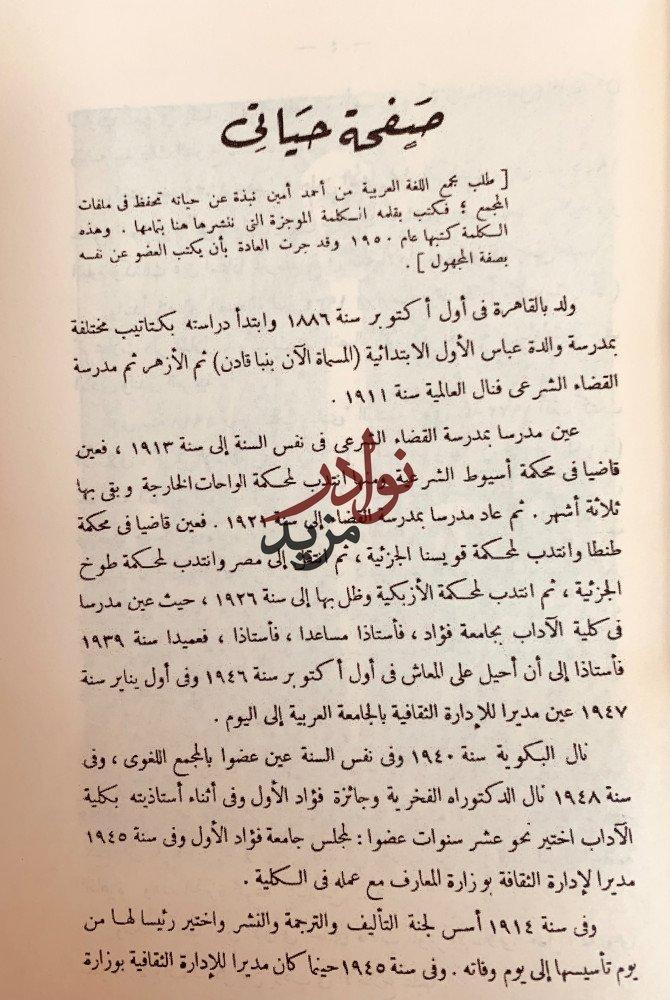 صَفحة حيَاتي
[ طلب مجمع اللغة العربية من أحمد أمين نبذة عن حياته تحفظ فى ملفات
المجمع ؛ فكتب بقلمه الكلمة الموجزة التى ننشرها هنا بتمامها . وهذه
الكلمة كتبها عام ١٩٥٠ وقد جرت العادة بأن يكتب العضو عن نفسه
بصفة المجهول ] .
ولد بالقاهرة فى أول أكتوبر سنة ١٨٨٦ وابتدأ دراسته بكتاتيب مختلفة
بمدرسة والدة عباس الأول الابتدائية (المسماة الآن بنبا قادن) ثم الأزهر ثم مدرسة
القضاء الشرعى فنال العالمية سنة ١٩١١ .
عين مدرسا بمدرسة القضاء الشرعى فى نفس السنة إلى سنة ١٩١٣ ، فعين
قاضيا فى محكمة أسيوط الشرعية ومنها انتدب لمحكمة الواحات الخارجة وبقى بها
ثلاثة أشهر . ثم عاد مدرسا بمدرسة القضاء إلى سنة ١٩٢١ . فعين قاضيا فى محكمة
طنطا وانتدب لمحكمة قويسنا الجزئية ، ثم انتقل إلى مصر وانتدب لمحكمة طوخ
الجزئية ، ثم انتدب لمحكمة الأزبكية وظل بها إلى سنة ١٩٢٦ ، حيث عين مدرسا
فى كلية الآداب بجامعة فؤاد ، فأستاذا مساعدا ، فأستاذا ، فعميدا سنة ١٩٣٩
فأستاذا إلى أن أحيل على المعاش فى أول أكتوبر سنة ١٩٤٦ وفى أول يناير سنة
١٩٤٧ عين مديرا للإدارة الثقافية بالجامعة العربية إلى اليوم .
نال البكوية سنة ١٩٤٠ وفى نفس السنة عين عضوا بالمجمع اللغوى ، وفى
سنة ١٩٤٨ نال الدكتوراه الفخرية وجائزة فؤاد الأول وفى أثناء أستاذيته بكلية
الآداب اختير نحو عشر سنوات عضوا : لمجلس جامعة فؤاد الأول وفى سنة ١٩٤٥
مديرا لإدارة الثقافة بوزارة المعارف مع عمله فى الكلية .
وفى سنة ١٩١٤ أسس لجنة التأليف والترجمة والنشر واختير رئيسا لها من
يوم تأسيسها إلى يوم وفاته . وفى سنة ١٩٤٥ حينما كان مديرا للإدارة الثقافية بوزارة
نوادر
مزيد